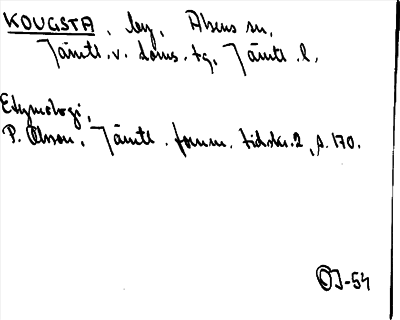 KOUGSTA, by, Alsens sn.
Jämtl. v. doms. tg, Jämtl. l.
Etymologi,
P. Olsson, Jämtl. fornm. tidskr. 2, s. 170.
OJ-54